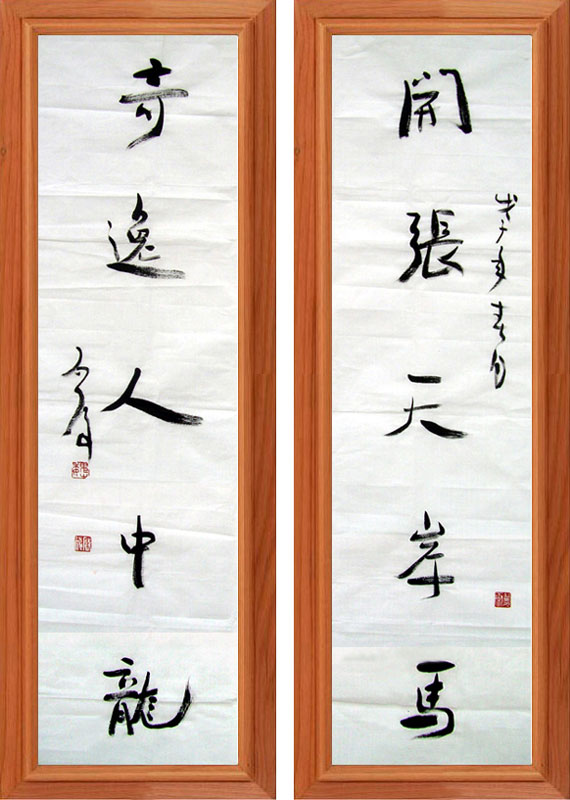 開張天岸馬
戊子年春月
奇逸人中龍